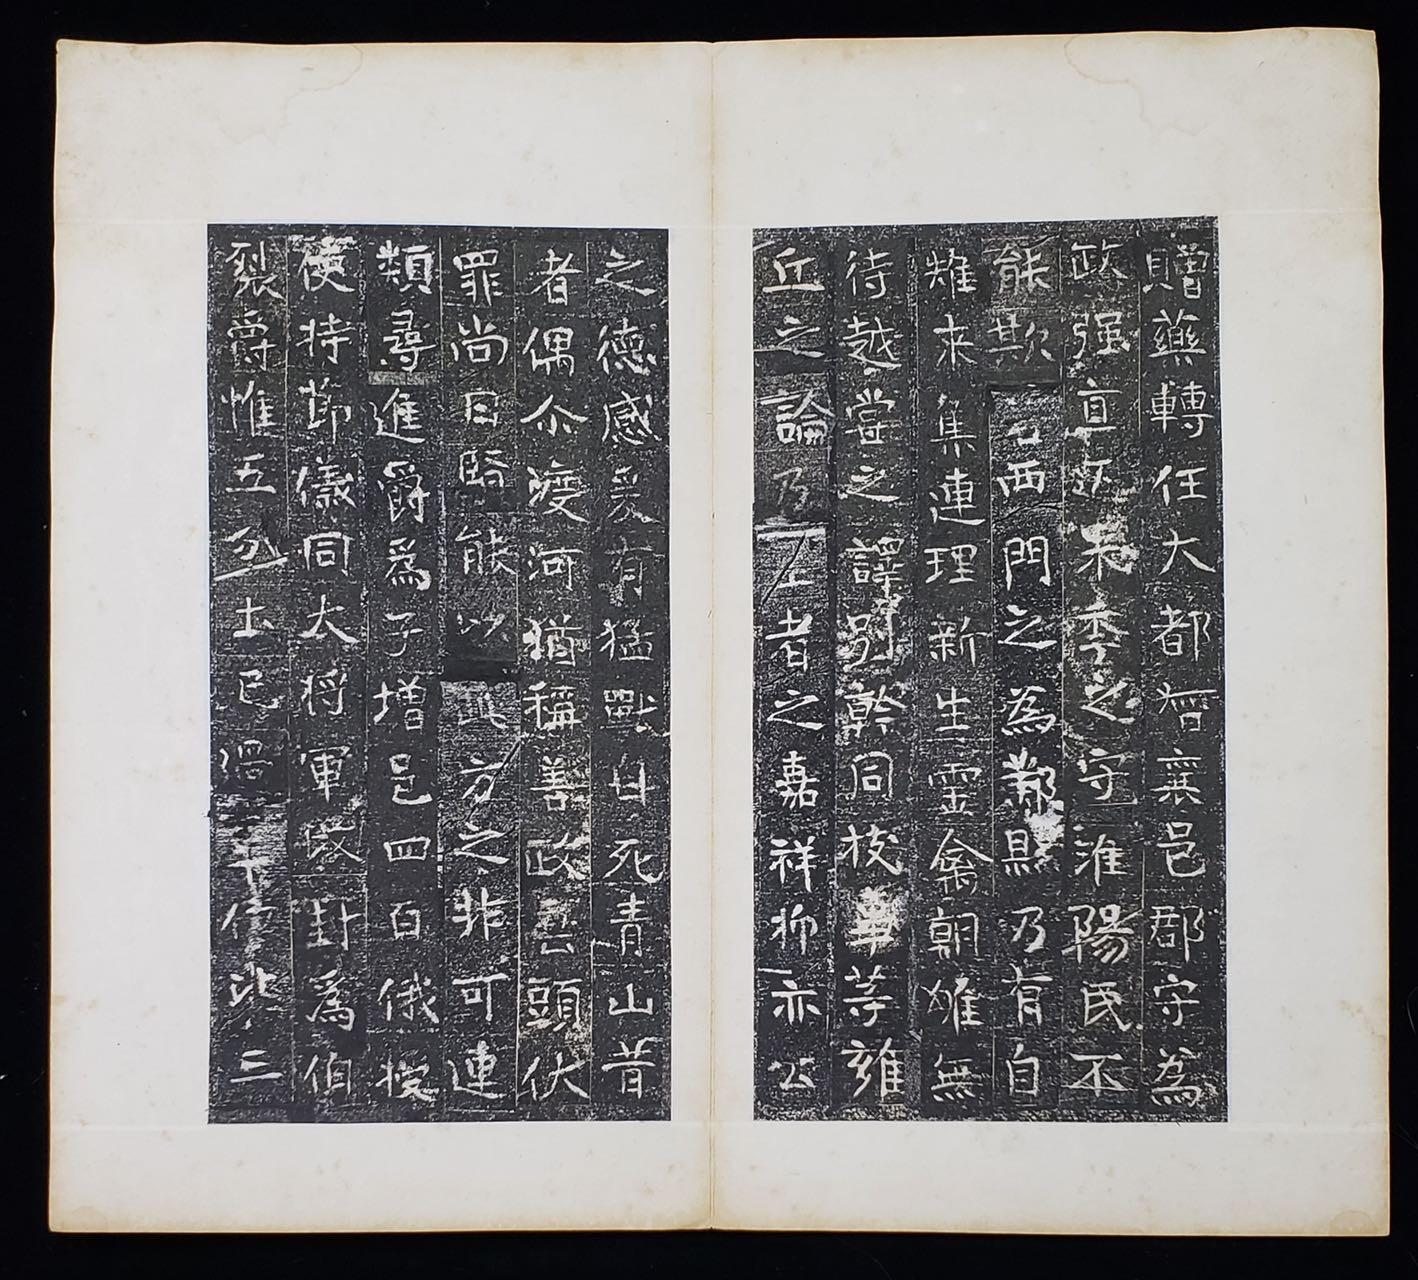 贈藥轉任大都督襄邑郡守為
政强直迈朱季之守淮陽民不
能欺西門之為鄴縣乃有白
雉来集連理新生靈禽朝雊無
待越裳之譯別幹同枝寧等雍
丘之論乃王者之嘉祥抑亦公
之德感爰有猛獸甘死青山昔
者偶尒渡河猶稱善政云頭伏
罪尚曰賢能以此方之非可連
類尋進爵爲子增邑四百俄授
使持節儀同大將軍改封爲伯
裂爵惟五分土已遥平作此三